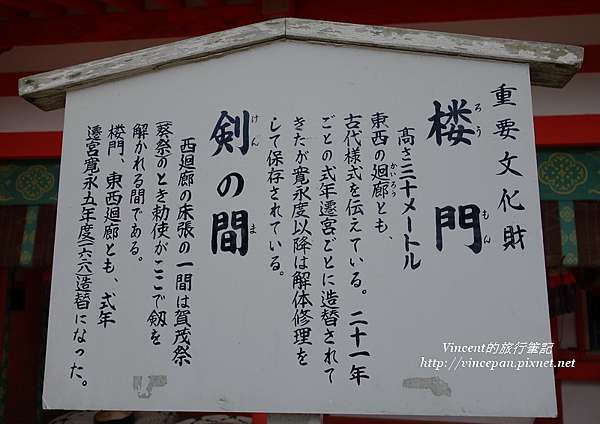 重要文化財
楼門
ろう もん
高さ三十メートル
東西の廻廊とも、
かいろう
古代様式を伝えている。二十一年
ごとの式年遷宮ごとに造替されて
きたが寛永度以降は解体修理を
して保存されている。
剣の間
けん ま
西廻廊の床張の一間は賀茂祭
(葵祭)のとき勅使がここで剱を
解かれる間である。
楼門、東西廻廊とも、式年
遷宮寛永五年度(一六二八)造替になった。
Vincent的旅行筆記
http://vincepan.pixnet.net